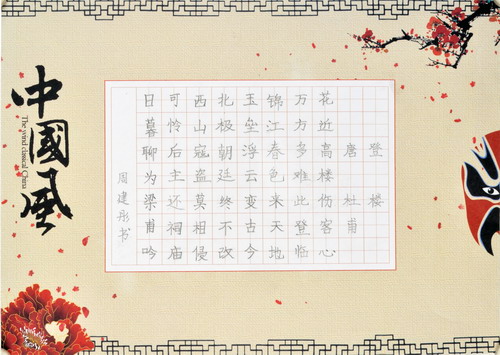 登楼
唐 杜甫
花近高楼伤客心
万方多难此登临
锦江春色来天地
玉垒浮云变古今
北极朝廷终不改
西山寇盗莫相侵
可怜后主还祠庙
日暮聊为梁甫吟
周建彤书
中國風
The wind classical China